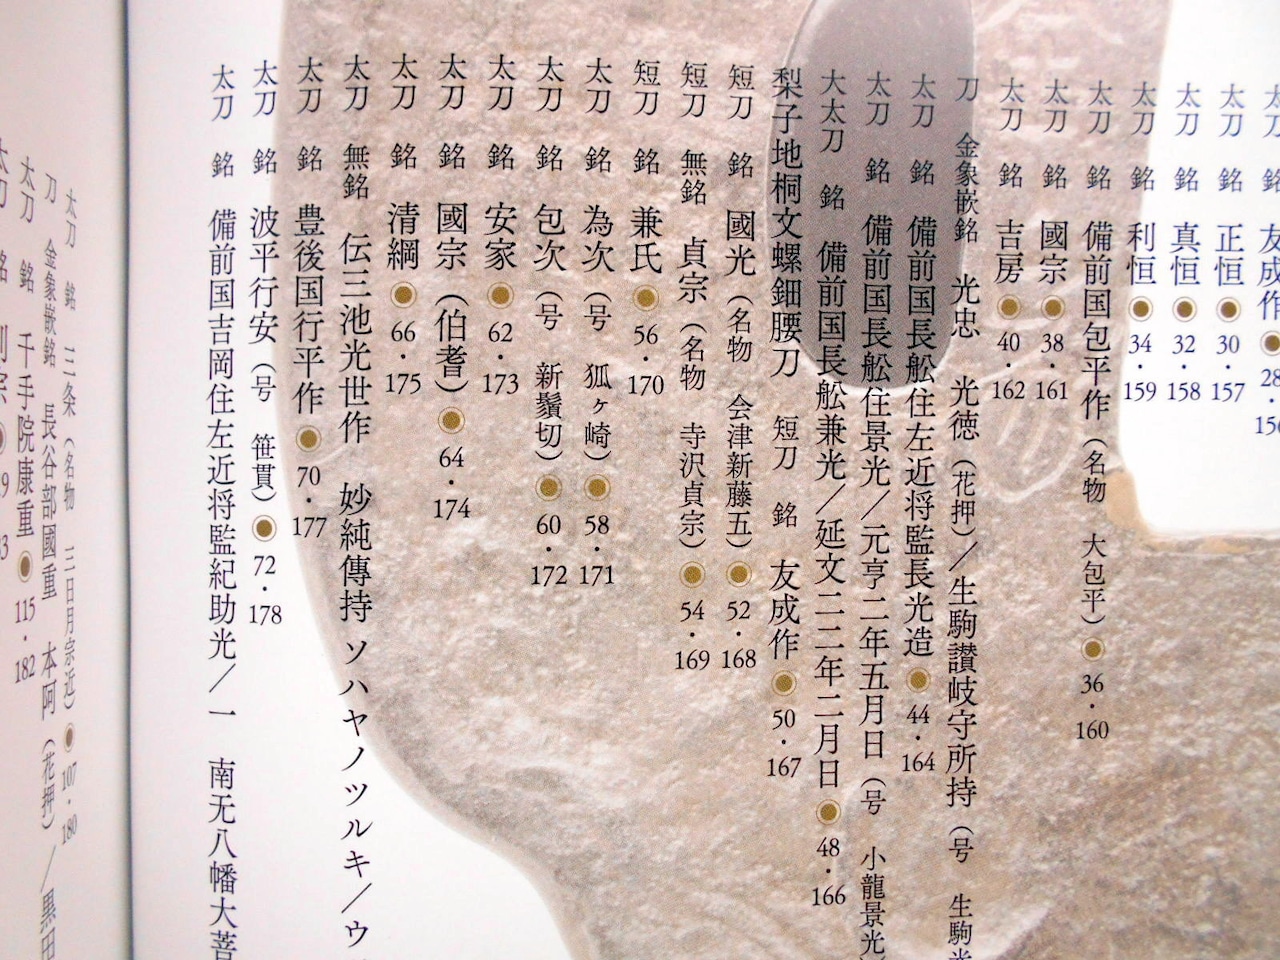 友成作 ◉ 28・156
太刀 銘 正恒 ◉ 30・157
太刀 銘 真恒 ◉ 32・158
太刀 銘 利恒 ◉ 34・159
太刀 銘 備前国包平作（名物 大包平）◉ 36・160
太刀 銘 國宗 ◉ 38・161
太刀 銘 吉房 ◉ 40・162
刀 金象嵌銘 光忠 光徳（花押）／生駒讃岐守所持（号 生駒光
太刀 銘 備前国長舩住左近将監長光造 ◉ 44・164
太刀 銘 備前国長舩住景光／元亨二年五月日（号 小龍景光
大太刀 銘 備前国長舩兼光／延文二二年二月日 ◉ 48・166
梨子地桐文螺鈿腰刀 短刀 銘 友成作 ◉ 50・167
短刀 銘 國光（名物 会津新藤五）◉ 52・168
短刀 無銘 貞宗（名物 寺沢貞宗）◉ 54・169
短刀 銘 兼氏 ◉ 56・170
太刀 銘 為次（号 狐ヶ崎）◉ 58・171
太刀 銘 包次（号 新鬚切）◉ 60・172
太刀 銘 安家 ◉ 62・173
太刀 銘 國宗（伯耆）◉ 64・174
太刀 銘 清綱 ◉ 66・175
太刀 無銘 伝三池光世作 妙純傳持 ソハヤノツルキ／ウ
太刀 銘 豊後国行平作 ◉ 70・177
太刀 銘 波平行安（号 笹貫）◉ 72・178
太刀 銘 備前国吉岡住左近将監紀助光／一 南无八幡大菩
太刀 銘 三条（名物 三日月宗近）◉ 107・180
刀 金象嵌銘 長谷部國重 本阿（花押）／黒田
太刀 銘 千手院康重 ◉ 115・182